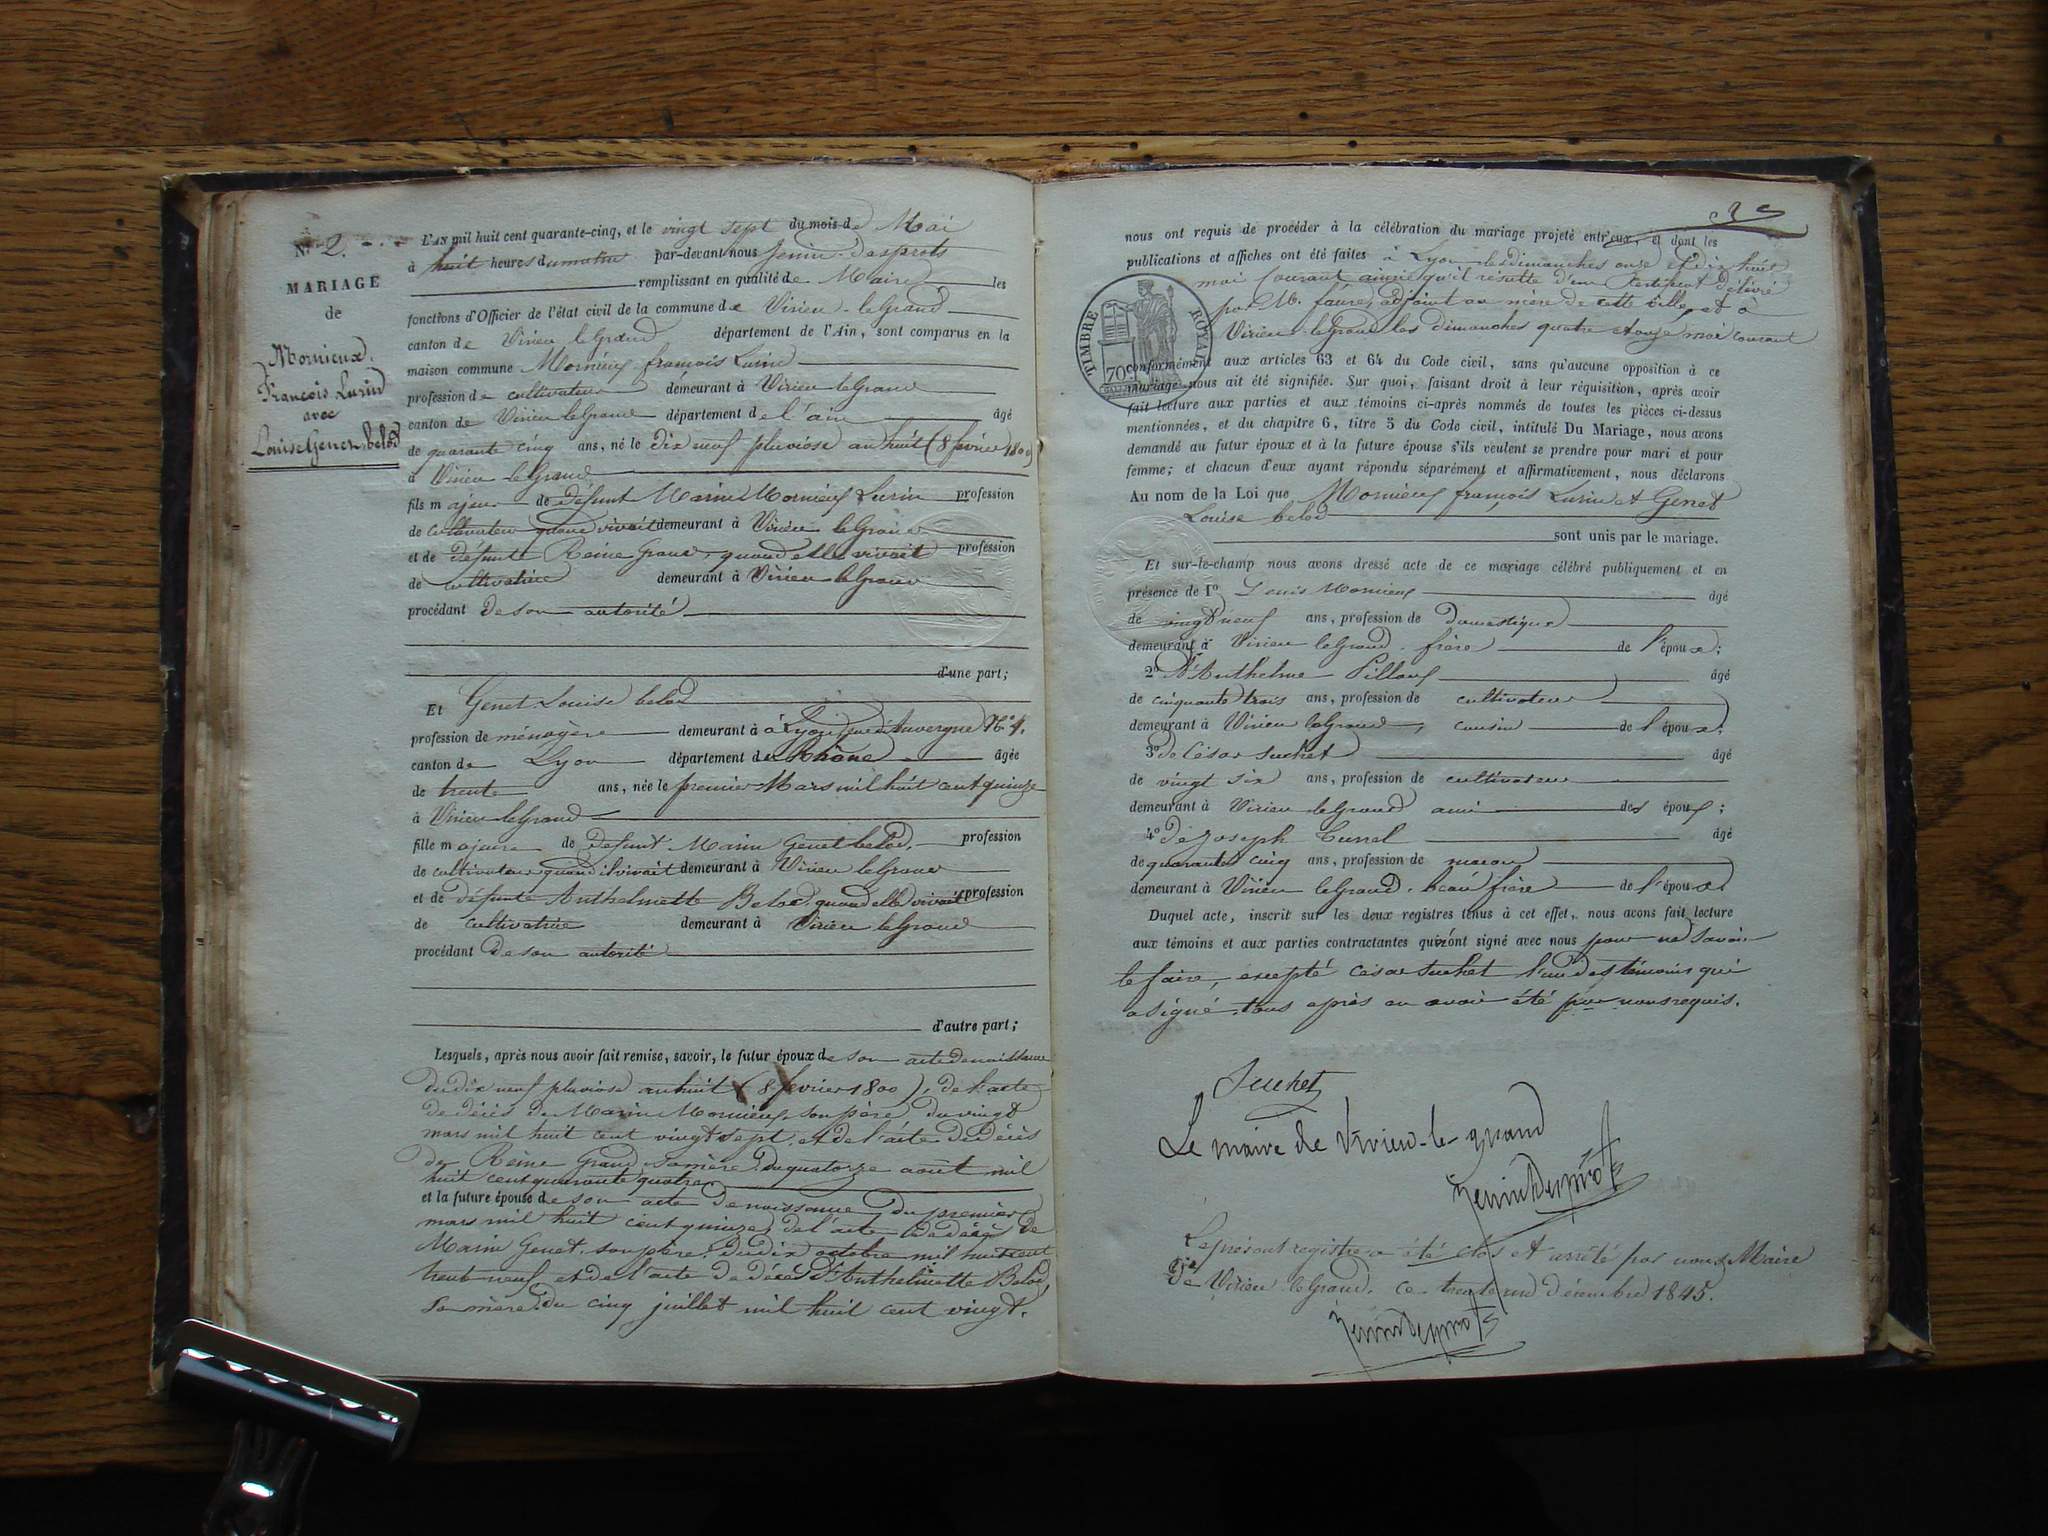 N.º 2.
MARIAGE
de
Mornieux.
François Lurin
avec
Louise Genet-belod
L'AN mil huit cent quarante-cinq, et le vingt sept du mois de Mai
à huit heures du matin par-devant nous Jenin-desprots
remplissant en qualité de Maire les
fonctions d'Officier de l'état civil de la commune de Virieu-le-Grand
canton de Virieu le Grand département de l'Ain, sont comparus en la
maison commune Mornieux françois Lurin
profession de cultivateur demeurant à Virieu le Grand
canton de Virieu le Grand département de l'ain âgé
de quarante cinq ans, né le dix neuf pluviose an huit (8 fevrier 1800)
à Virieu le Grand
fils majeur de défunt Marin Mornieux Lurin profession
de cultivateur quand vivait demeurant à Virieu le Grand
et de défunte Reine Grand, quand elle vivait profession
de cultivatrice demeurant à Virieu le Grand
procédant de son autorité
d'une part;
Et Genet Louise belod
profession de ménagère demeurant à à Lyon rue d'Auvergne N.º 4.
canton de Lyon département du Rhône âgée
de trente ans, née le premier Mars mil huit cent quinze
à Virieu le Grand
fille majeure de défunt Marin Genet belod. profession
de cultivateur quand il vivait demeurant à Virieu le Grand
et de défunte Anthelmette Belod, quand elle vivait profession
de cultivatrice demeurant à Virieu le Grand
procédant de son autorité
d'autre part;
Lesquels, après nous avoir fait remise, savoir, le futur époux de son acte de naissance
du dix neuf pluviose an huit (8 fevrier 1800), de l'acte
de décès de Marin Mornieux, son père, du vingt
mars mil huit cent vingt sept, et de l'acte de décès
de Reine Grand, sa mère, du quatorze août mil
huit cent quarante quatre
et la future épouse de son acte de naissance du premier
mars mil huit cent quinze, de l'acte de décès de
Marin Genet, son père, du dix octobre mil huit cent
trente neuf et de l'acte de décès d'Anthelmette Belod,
sa mère, du cinq juillet mil huit cent vingt.
nous ont requis de procéder à la célébration du mariage projeté entr'eux, et dont les
publications et affiches ont été faites à Lyon les dimanches onze et dix huit
mai courant ainsi qu'il résulte d'un certificat délivré
par M. faure, adjoint au mère de cette ville, et à
Virieu-le Grand les dimanches quatre et onze mai courant
TIMBRE ROYAL
70 C.
conformément aux articles 63 et 64 du Code civil, sans qu'aucune opposition à ce
mariage nous ait été signifiée. Sur quoi, faisant droit à leur réquisition, après avoir
fait lecture aux parties et aux témoins ci-après nommés de toutes les pièces ci-dessus
mentionnées, et du chapitre 6, titre 5 du Code civil, intitulé Du Mariage, nous avons
demandé au futur époux et à la future épouse s'ils veulent se prendre pour mari et pour
femme; et chacun d'eux ayant répondu séparément et affirmativement, nous déclarons
Au nom de la Loi que Mornieux françois Lurin et Genet
Louise belod
sont unis par le mariage.
Et sur-le-champ nous avons dressé acte de ce mariage célébré publiquement et en
présence de 1º Denis Mornieux âgé
de vingt neuf ans, profession de domestique
demeurant à Virieu le Grand frère de l'époux;
2º d'Anthelme Pilloux âgé
de cinquante trois ans, profession de cultivateur
demeurant à Virieu le Grand, cousin de l'époux.
3º de César Suchet âgé
de vingt six ans, profession de cultivateur
demeurant à Virieu le Grand ami des époux;
4º de Joseph Currel âgé
de quarante cinq ans, profession de maçon
demeurant à Virieu le Grand. beau frère de l'époux
Duquel acte, inscrit sur les deux registres tenus à cet effet, nous avons fait lecture
aux témoins et aux parties contractantes qui n'ont signé avec nous pour ne savoir
le faire, excepté César Suchet l'un des témoins qui
a signé, tous après en avoir été par nous requis.
Suchet
Le maire de Virieu-le-grand
Jenin Desprots
Le présent registre a été clos et arrêté par nous Maire
de Virieu le Grand. ce trente un décembre 1845.
Jenin Desprots